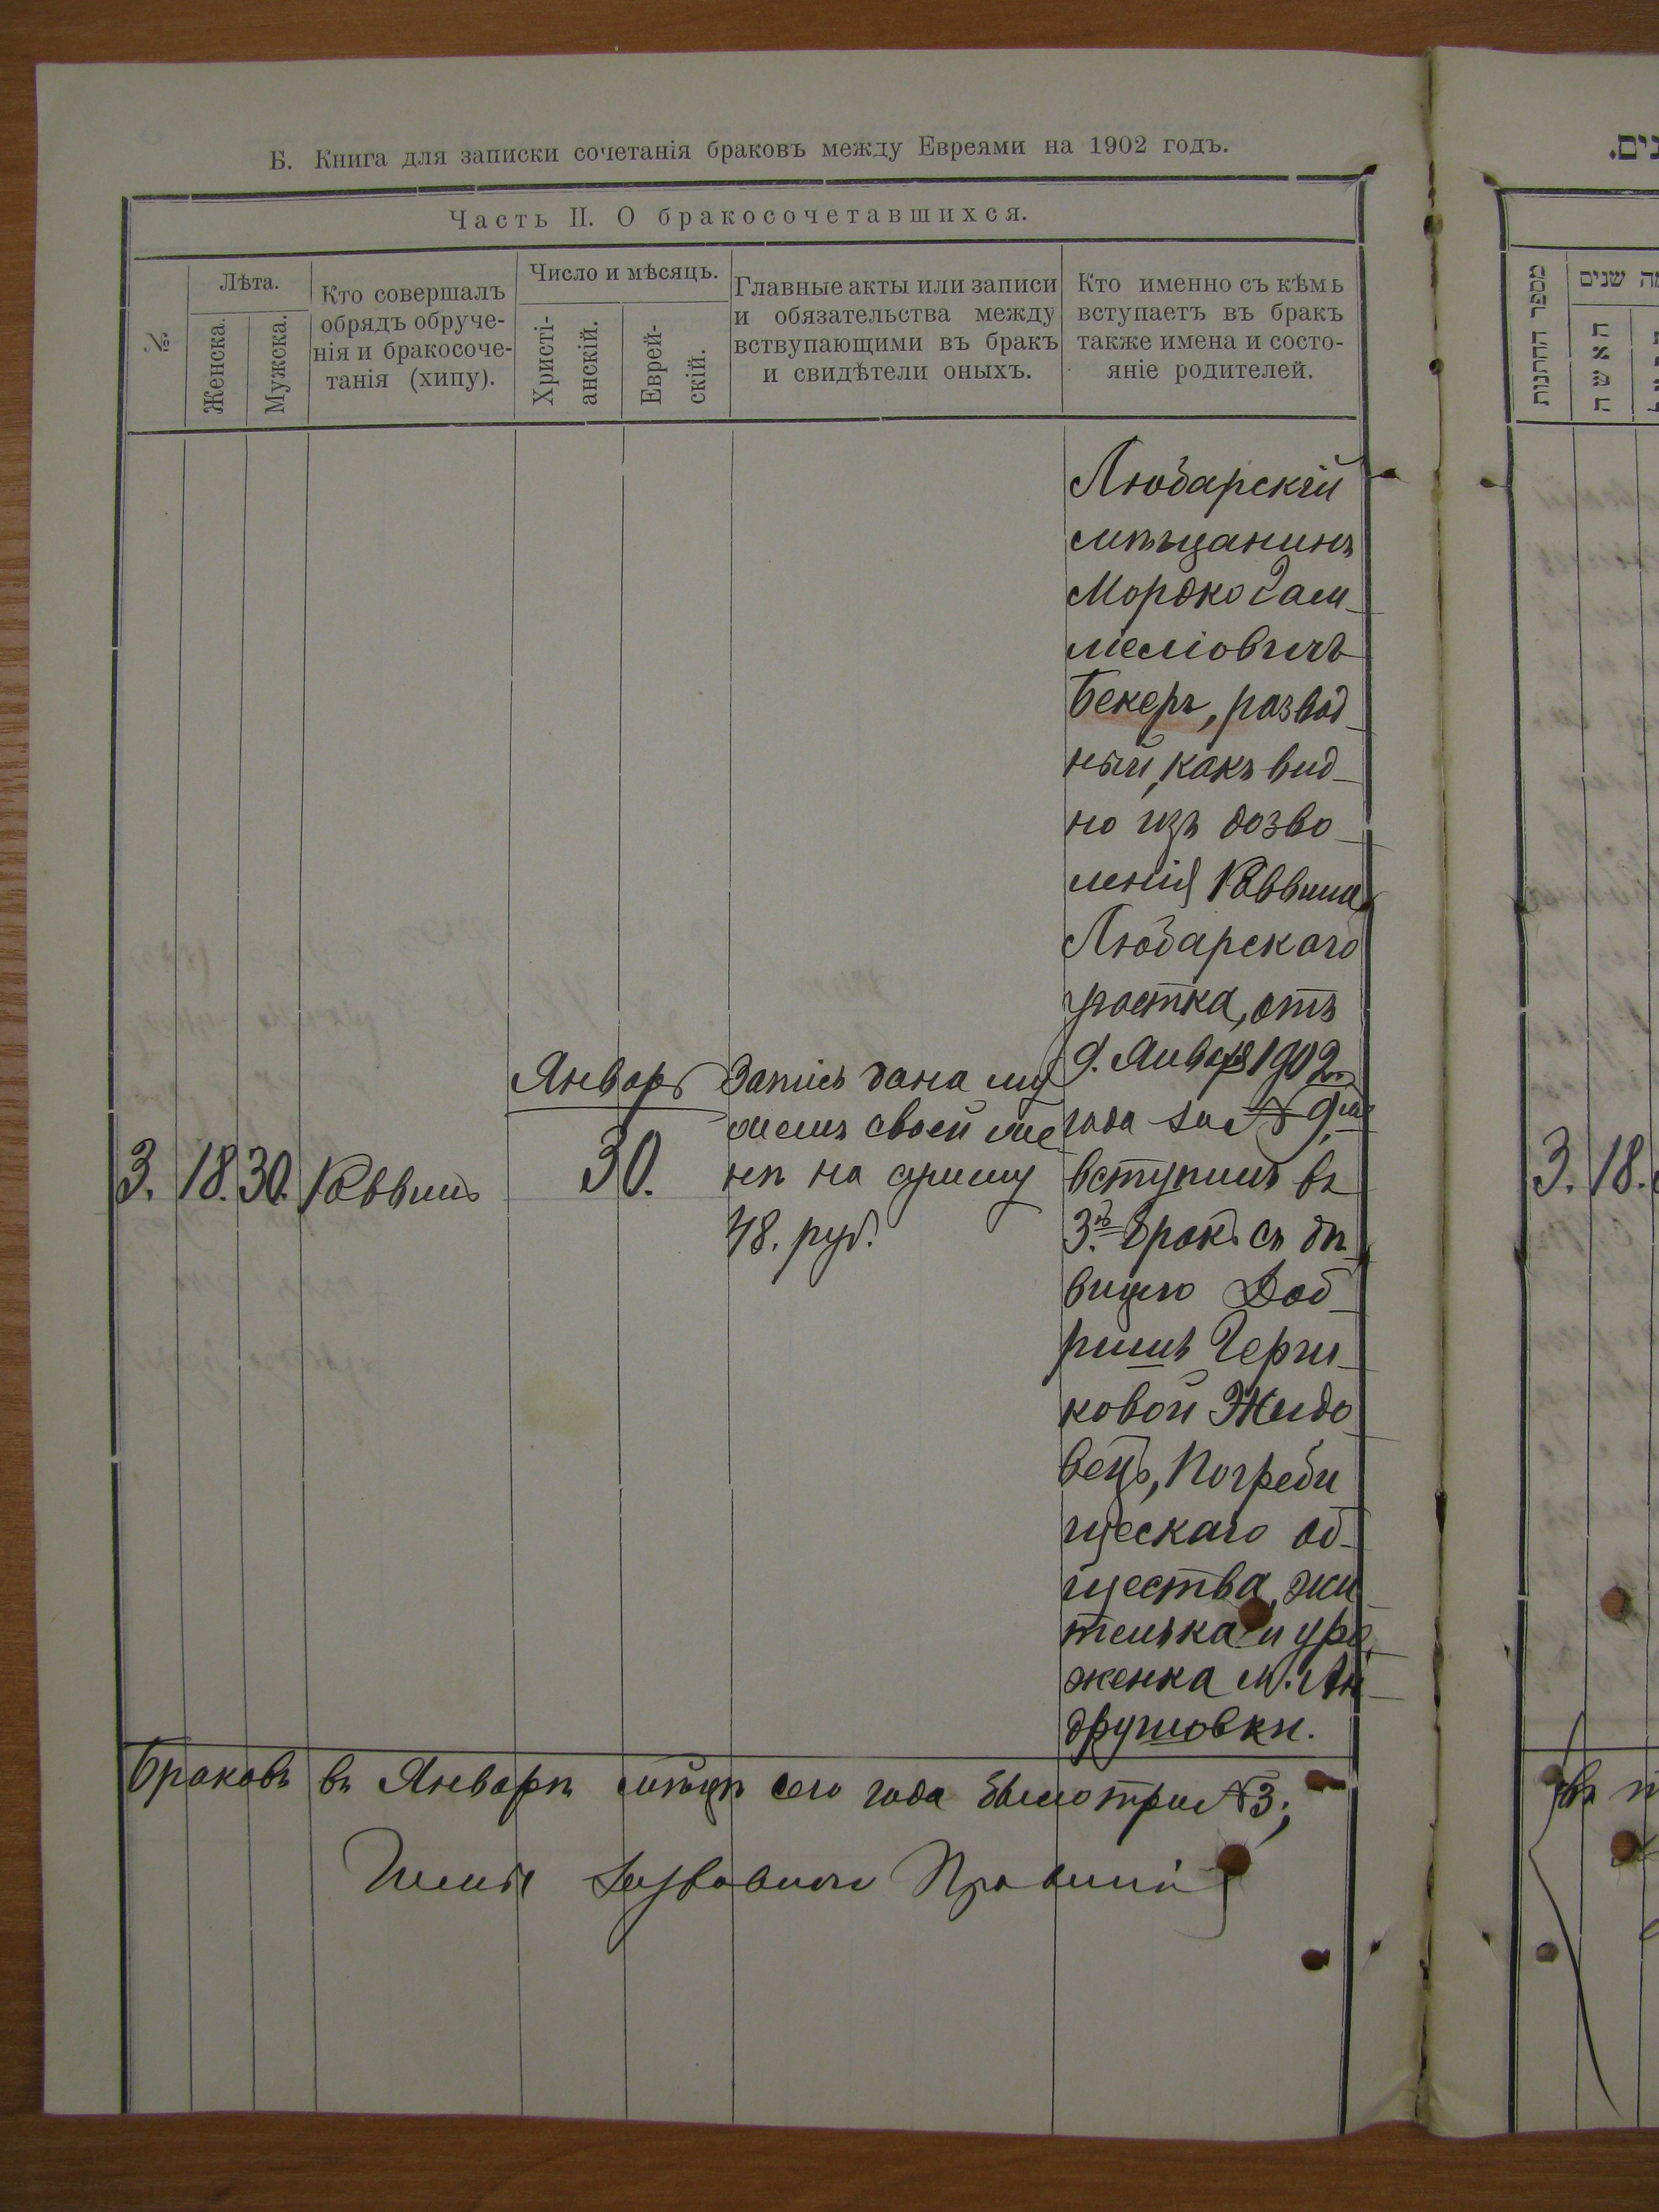 Б. Книга для записки сочетанія браковъ между Евреями на 1902 годъ.
Часть II. О бракосочетавшихся.
№
Лѣта.
Женска.
Мужска.
Кто совершалъ
обрядъ обруче-
нія и бракосоче-
танія (хипу).
Число и мѣсяцъ.
Христі-
анскій.
Еврей-
скій.
Главные акты или записи
и обязательства между
вствупающими въ бракъ
и свидѣтели оныхъ.
Кто именно съ кѣмъ
вступаетъ въ бракъ
также имена и состо-
яніе родителей.
3. 18. 30. Раввинъ
Январь
30.
Запись дана му
жемъ своей же
нѣ на сумму
48. руб.
Любарскій
мѣщанинъ
Мордко Гам-
ліеліовичъ
Бекеръ, развод-
ный, какъ вид-
но изъ дозво-
ленія Раввина
Любарскаго
участка, отъ
9. Января 1902.
года за № 9,
вступилъ въ
3.й бракъ съ дѣ
вицею Доб-
ришъ Герш-
ковой Жидо
вецъ, Погреби
щескаго об-
щества, жи-
телька и уро-
женка м. Ан-
друшовки.
Браковъ въ Январѣ мѣсяцѣ сего года было три №3;
נים.
מספר החתנות
שנים
האשה
3. 18.